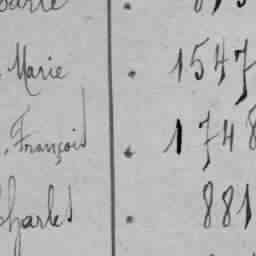 Marie . 1547
, François . 1748
Charles . 881